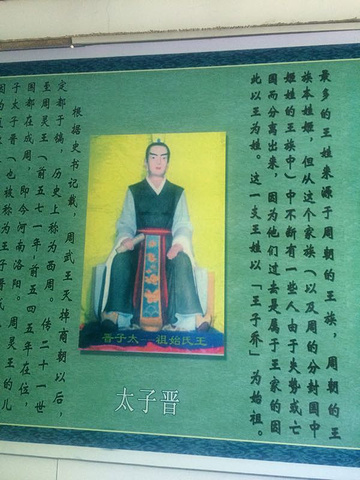 最多的王姓来源于周朝的王族，周朝的王
族本姓姬，但从这个家族（以及周的分封国中
姬姓的王族中）中不断有一些人由于失势或亡
国而分离出来，因为他们过去是属于王家的因
此以王为姓。这一支王姓以「王子乔」为始祖。
王氏始祖——太子晋
太子晋
根据史书记载，周武王灭掉商朝以后，
定都于镐，历史上称为西周。传二十一世
至周灵王（前五七一年，前五四五年在位，
国都在成周，即今河南洛阳。周灵王的儿
于太子晋（也被称为王子晋